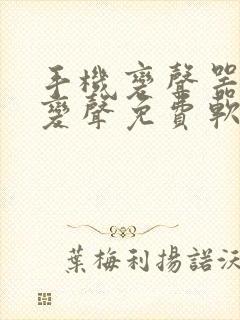 手機变聲器
變聲免費軟
葉梅利揚諾沃